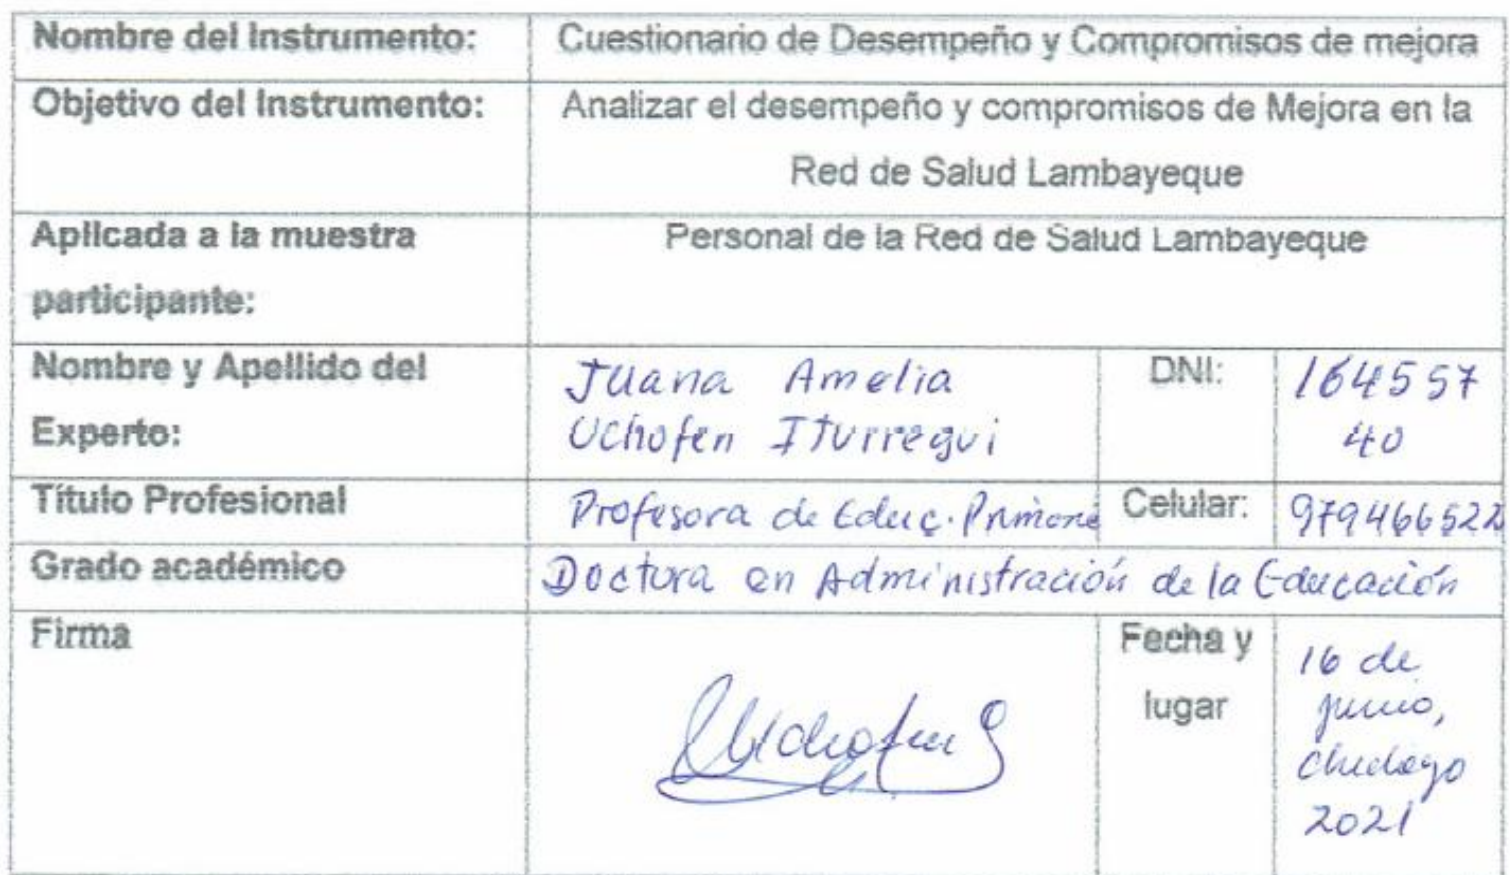 Nombre del Instrumento: Cuestionario de Desempeño y Compromisos de mejora
Objetivo del Instrumento: Analizar el desempeño y compromisos de Mejora en la
Red de Salud Lambayeque
Aplicada a la muestra Personal de la Red de Salud Lambayeque
participante:
Nombre y Apellido del Juana Amelia DNI: 164557
Experto: Uchofen Iturregui 40
Título Profesional Profesora de Educ. Primaria Celular: 979466522
Grado académico Doctora en Administración de la Educación
Firma Fecha y 16 de
lugar junio,
Chiclayo
2021